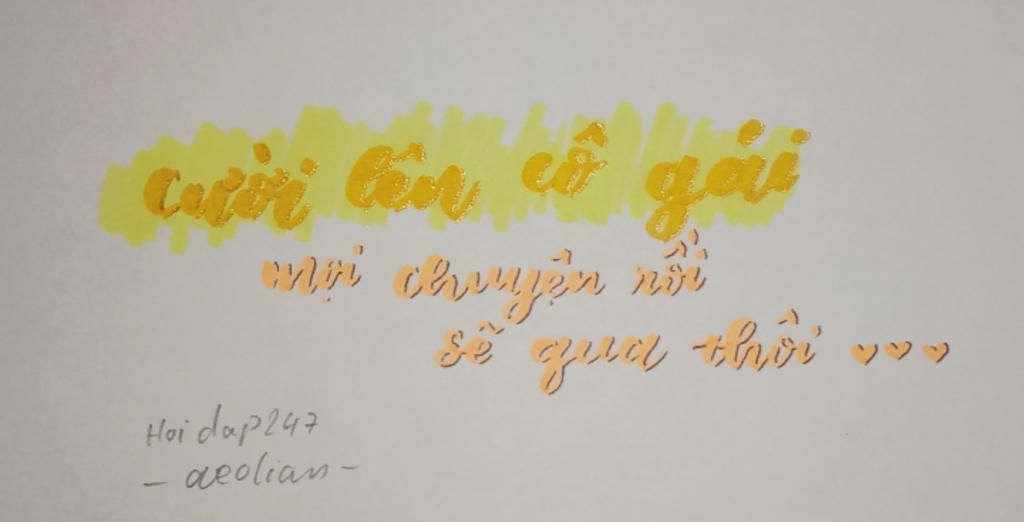 Cười lên cô gái
mọi chuyện rồi
sẽ qua thôi ♥♥♥
Hoidap247
- aeolian -